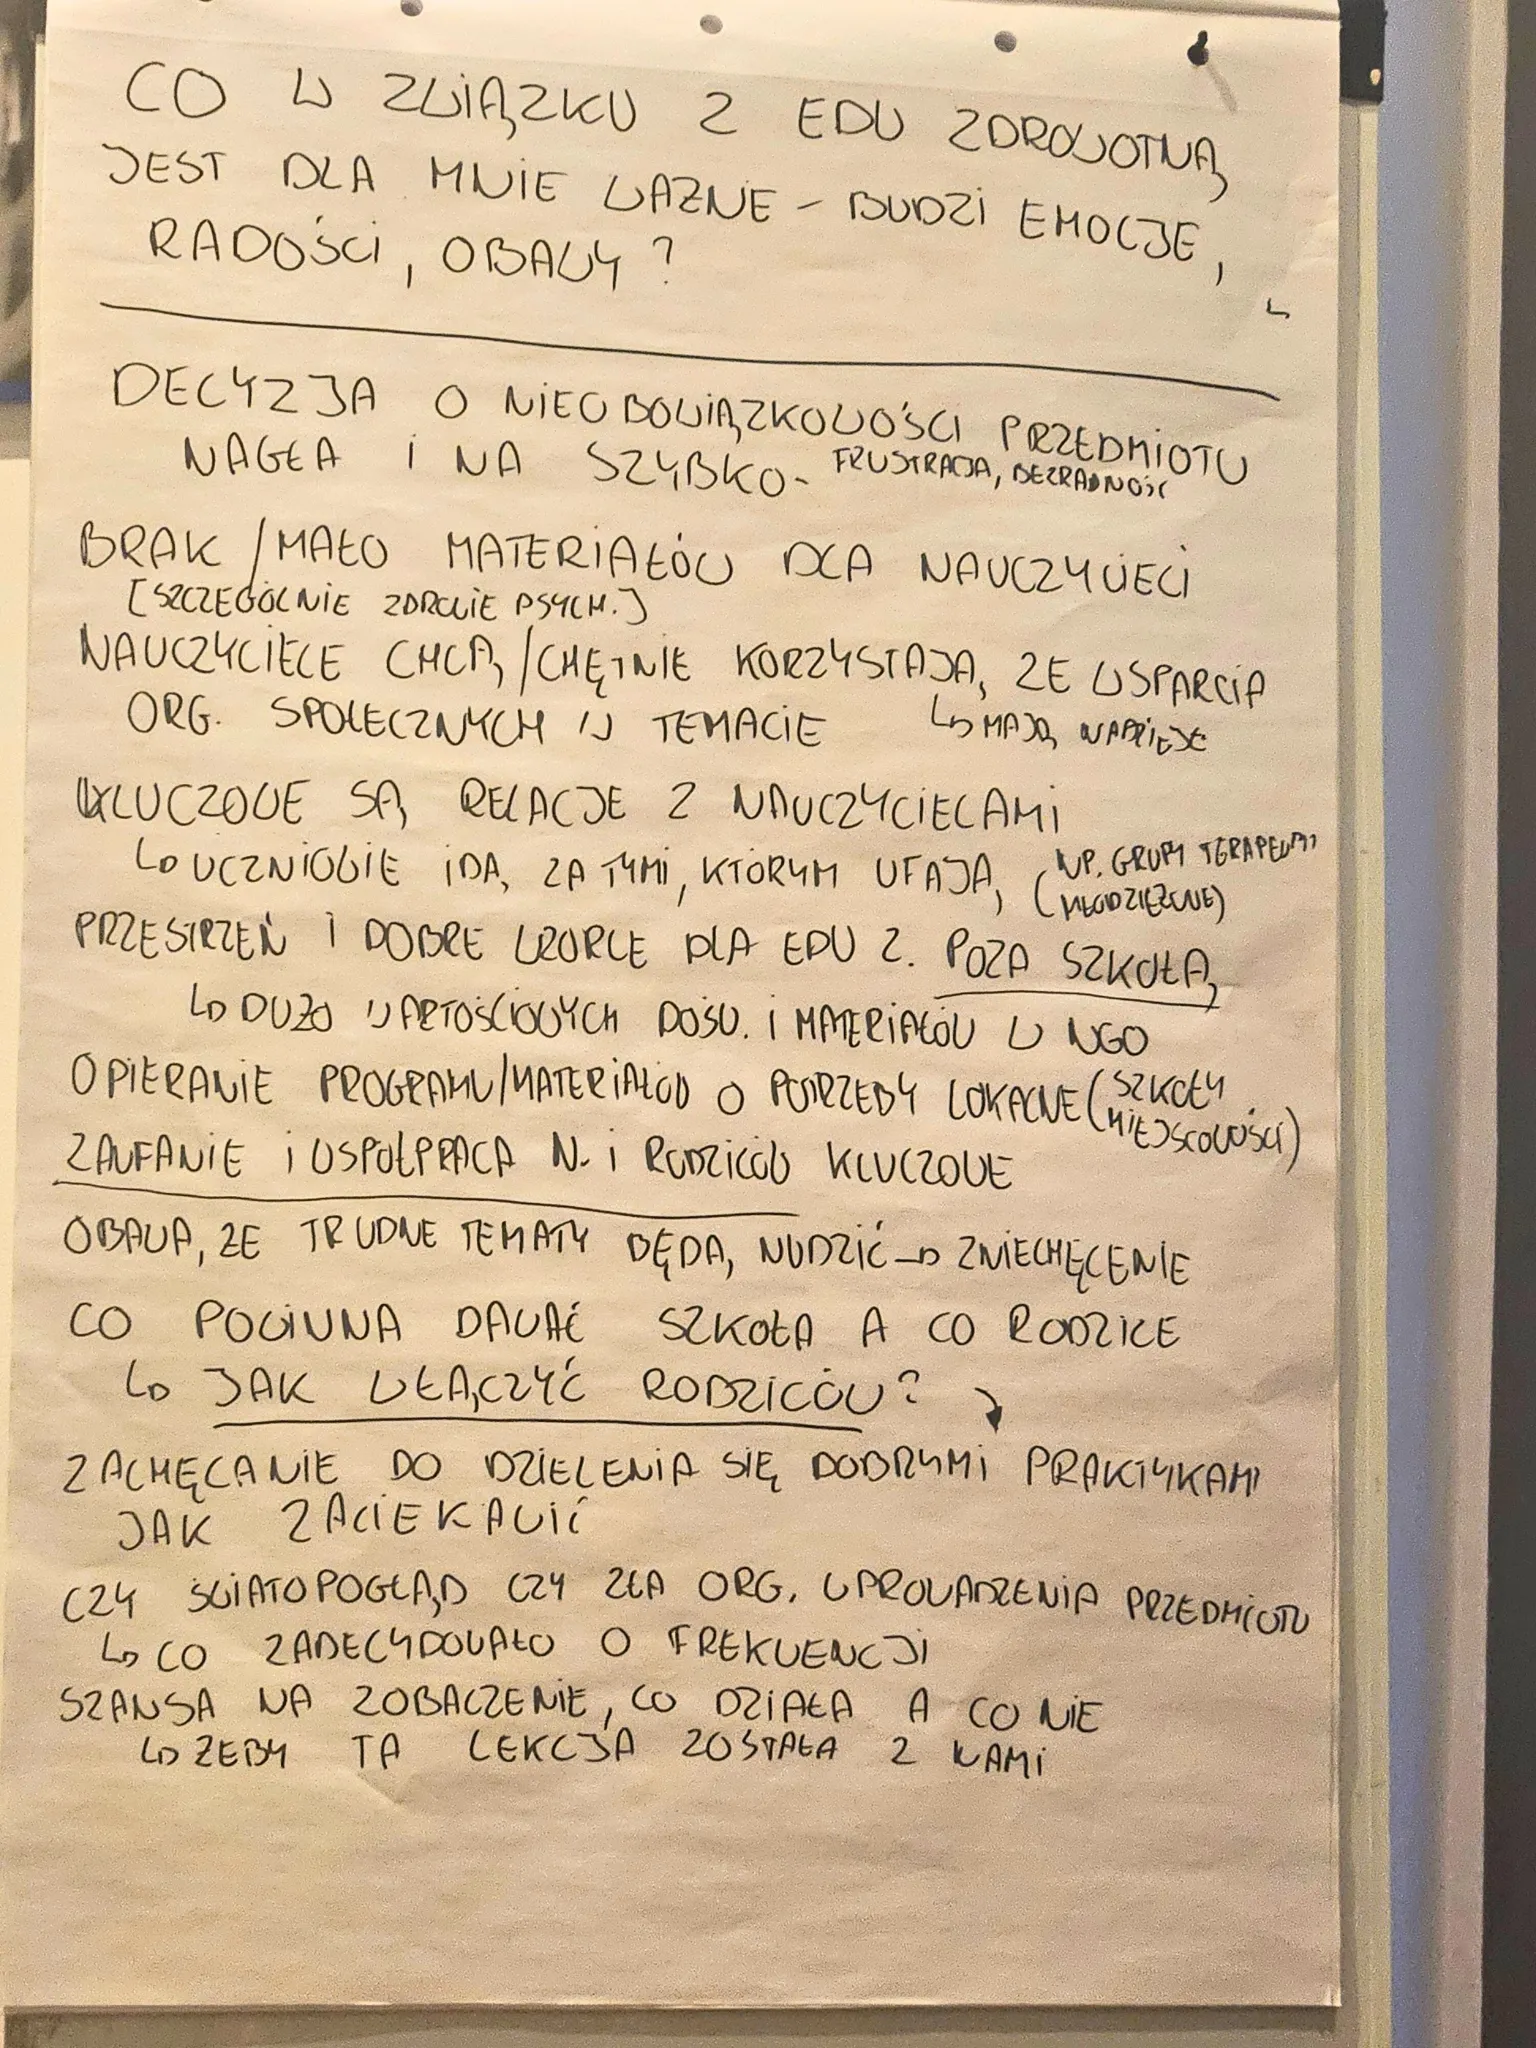 CO W ZWIĄZKU Z EDU ZDROWOTNĄ
JEST DLA MNIE WAŻNE – BUDZI EMOCJE,
RADOŚCI, OBAWY?
DECYZJA O NIEOBOWIĄZKOWOŚCI PRZEDMIOTU
NAGŁA I NA SZYBKO - FRUSTRACJA, BEZRADNOŚĆ
BRAK / MAŁO MATERIAŁÓW DLA NAUCZYCIELI
[SZCZEGÓLNIE ZDROWIE PSYCH.]
NAUCZYCIELE CHCĄ / CHĘTNIE KORZYSTAJĄ ZE WSPARCIA
ORG. SPOŁECZNYCH W TEMACIE ↳ MAJĄ NADZIEJĘ
KLUCZOWE SĄ RELACJE Z NAUCZYCIELAMI
↳ UCZNIOWIE IDĄ ZA TYMI, KTÓRYM UFAJĄ (NP. GRUPY TERAPEUT.
MŁODZIEŻOWE)
PRZESTRZEŃ I DOBRE WZORCE DLA EDU Z. POZA SZKOŁĄ
↳ DUŻO WARTOŚCIOWYCH DOŚW. I MATERIAŁÓW W NGO
OPIERANIE PROGRAMU/MATERIAŁÓW O POTRZEBY LOKALNE (SZKOŁY
MIEJSCOWOŚCI)
ZAUFANIE I WSPÓŁPRACA N. I RODZICÓW KLUCZOWE
OBAWA, ŻE TRUDNE TEMATY BĘDĄ NUDZIĆ → ZNIECHĘCENIE
CO POWINNA DAWAĆ SZKOŁA A CO RODZICE
↳ JAK WŁĄCZYĆ RODZICÓW?
ZACHĘCANIE DO DZIELENIA SIĘ DOBRYMI PRAKTYKAMI
JAK ZACIEKAWIĆ
CZY ŚWIATOPOGLĄD CZY ZŁA ORG. WPROWADZENIA PRZEDMIOTU
↳ CO ZADECYDOWAŁO O FREKWENCJI
SZANSA NA ZOBACZENIE, CO DZIAŁA A CO NIE
↳ ŻEBY TA LEKCJA ZOSTAŁA Z NAMI